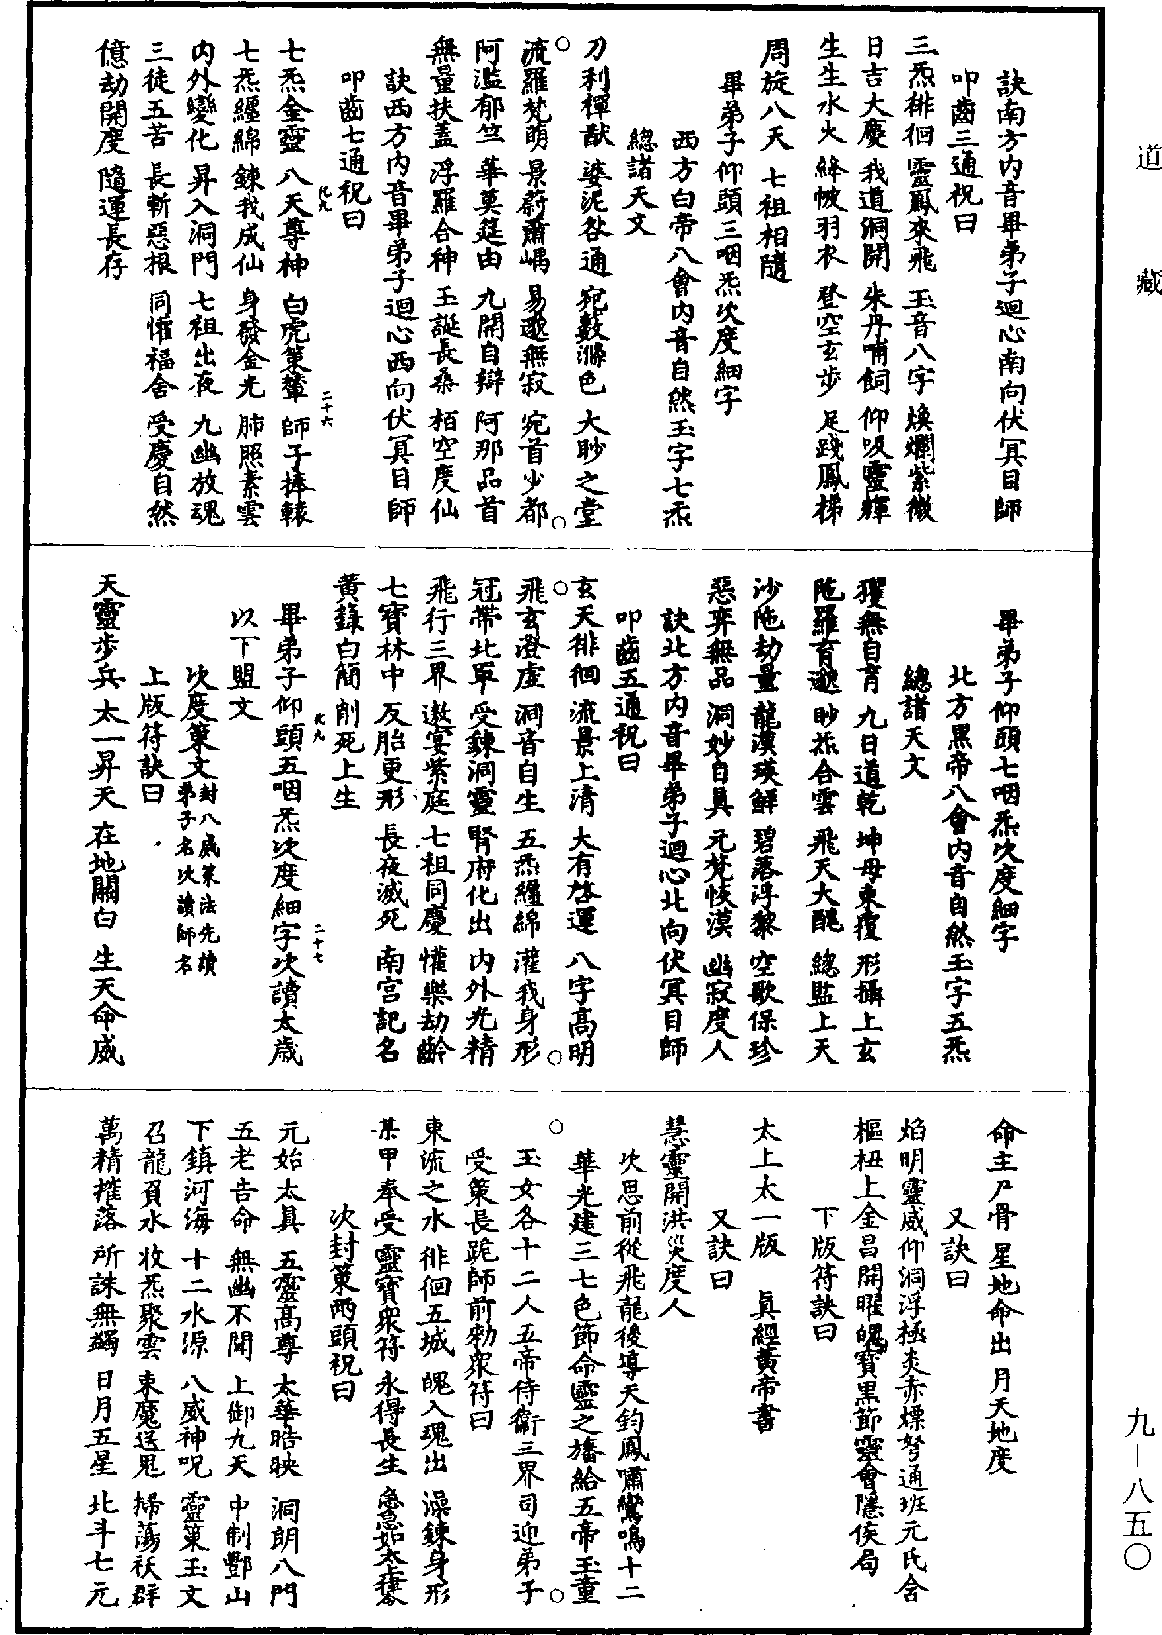 道藏
訣南方內音畢弟子迴心南向伏冥目師
叩齒三通祝曰
三炁徘徊 靈鳳來飛 玉音八字 煥爛紫微
日吉大慶 我道洞開 朱丹哺飼 仰吸靈輝
生生水火 絳帔羽衣 登空玄步 足踐鳳梯
周旋八天 七祖相隨
畢弟子仰頭三咽炁次度細字
西方白帝八會內音自然玉字七炁
總諸天文
刀利禪猷 婆泥咎通 宛藪滌色 大眇之堂
流羅梵萌 景蔚蕭嵎 易邈無寂 宛首少都
阿濫郁竺 華莫筵由 九開自辯 阿那品首
無量扶蓋 浮羅合神 玉誕長桑 栢空度仙
訣西方內音畢弟子迴心西向伏冥目師
叩齒七通祝曰
七炁金靈 八天尊神 白虎策輦 師子捧轅
七炁纏綿 鍊我成仙 身發金光 肺照素雲
內外變化 昇入洞門 七祖出夜 九幽放魂
三徒五苦 長斬惡根 同懽福舍 受慶自然
億劫開度 隨運長存
二十六
畢弟子仰頭七咽炁次度細字
北方黑帝八會內音自然玉字五炁
總諸天文
玃無自育 九日道乾 坤母東覆 形攝上玄
陁羅育邈 眇炁合雲 飛天大醜 總監上天
沙陁劫量 龍漢瑛鮮 碧落浮黎 空歌保珍
惡弈無品 洞妙自真 元梵恢漠 幽寂度人
訣北方內音畢弟子迴心北向伏冥目師
叩齒五通祝曰
玄天徘徊 流景上清 大有啓運 八字高明
飛玄澄虛 洞音自生 五炁纏綿 灌我身形
冠帶北單 受鍊洞靈 腎府化出 內外光精
飛行三界 遨宴紫庭 七祖同慶 懽樂劫齡
七寶林中 反胎更形 長夜滅死 南宮記名
黃籙白簡 削死上生
畢弟子仰頭五咽炁次度細字次讀太歲
二十七
以下盟文
次度策文 封八威策法先讀弟子名次讀師名
上版符訣曰
天靈步兵 太一昇天 在地關白 生天命威
命主尸骨 星地命出 月天地度
又訣曰
焰明靈威仰洞浮極炎赤熛弩通班元氏含
樞杻上金昌開曜魄寶黑節靈會隱侯局
下版符訣曰
太上太一版 真經黃帝書
又訣曰
慧靈開洪災度人
次思前從飛龍後導天鈞鳳嘯鸞鳴十二
華光建三七色節命靈之旛給五帝玉童
玉女各十二人五帝侍衞三界司迎弟子
受策長跪師前勑眾符曰
東流之水 徘徊五城 魄入魂出 澡鍊身形
某甲奉受 靈寶眾符 永得長生 急急如太上律令
次封策兩頭祝曰
元始太真 五靈高尊 太華晧映 洞朗八門
五老告命 無幽不聞 上御九天 中制酆山
下鎮河海 十二水源 八威神呪 靈策玉文
召龍負水 收炁聚雲 束魔送鬼 掃蕩祅群
萬精摧落 所誅無蠲 日月五星 北斗七元
九—八五〇